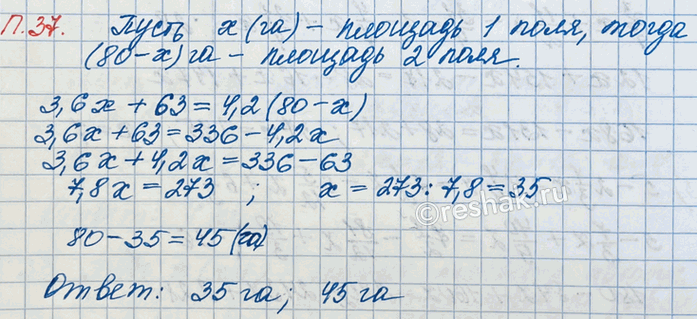 П.37. Пусть x (га) – площадь 1 поля, тогда
(80-x) га – площадь 2 поля.
3,6x + 63 = 4,2 (80-x)
3,6x + 63 = 336 - 4,2x
3,6x + 4,2x = 336 - 63
7,8x = 273 ; x = 273 : 7,8 = 35
©reshak.ru
80 - 35 = 45 (га)
Ответ: 35 га; 45 га